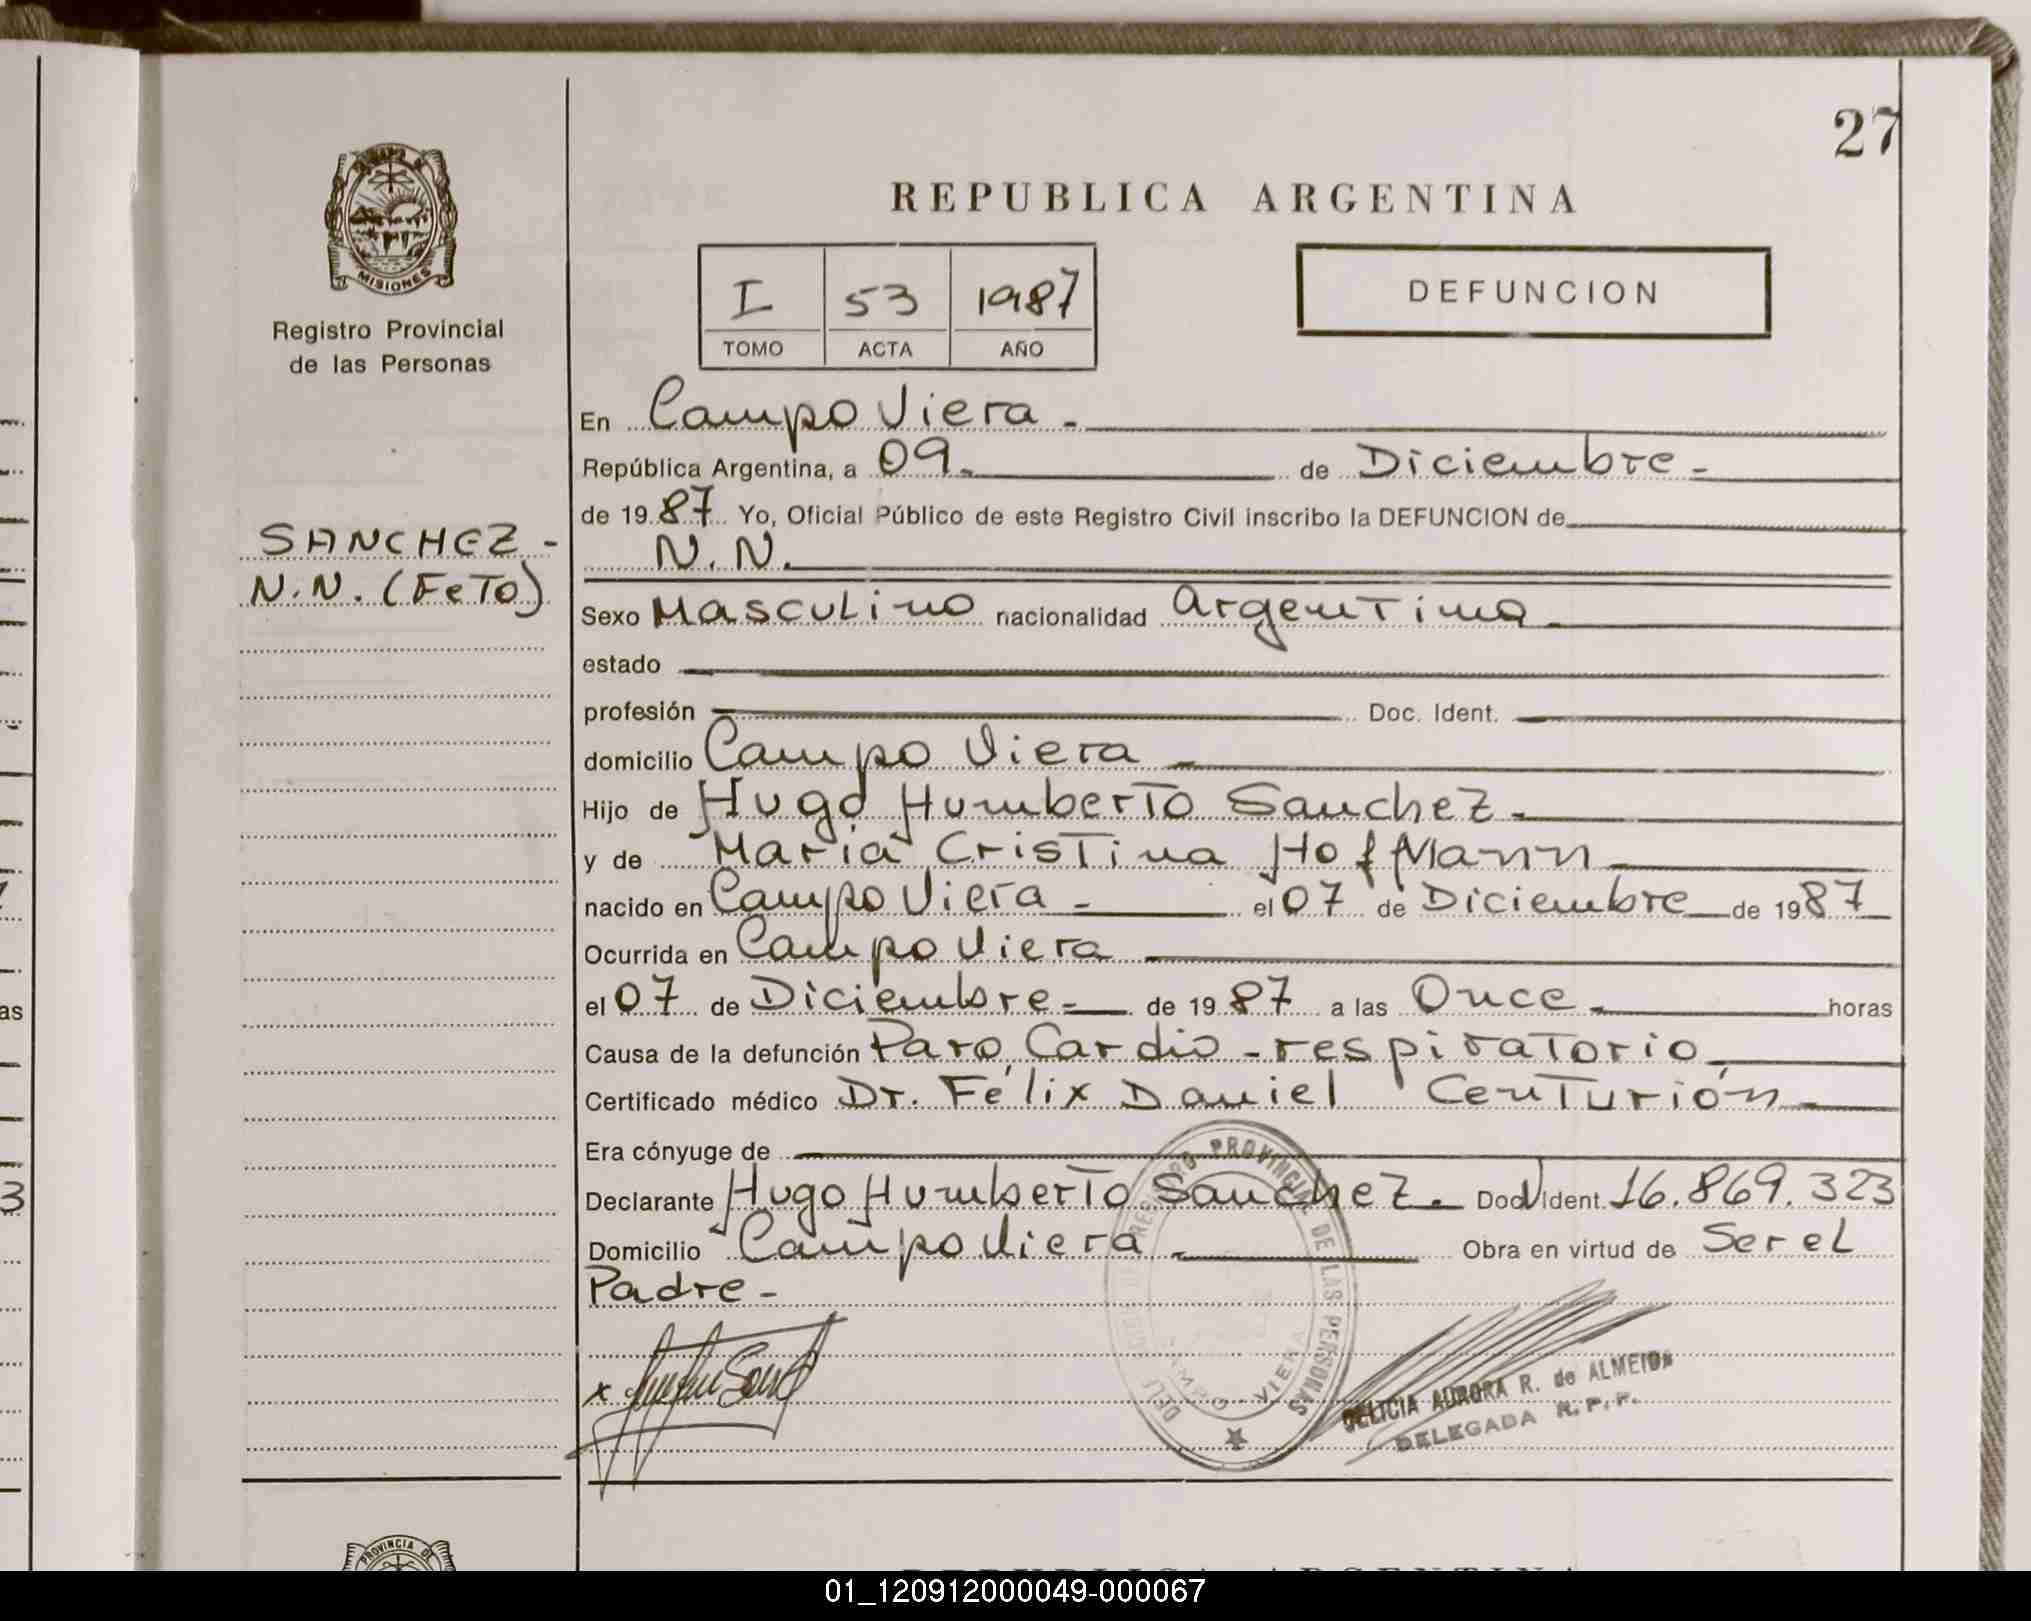 27
REPUBLICA ARGENTINA
MISIONES
Registro Provincial
de las Personas
I 53 1987
TOMO ACTA AÑO
DEFUNCION
SANCHEZ -
N.N. (FeTo)
En Campo Viera -
República Argentina, a 09 - de Diciembre -
de 19 87 Yo, Oficial Público de este Registro Civil inscribo la DEFUNCION de
N.N.
Sexo Masculino nacionalidad Argentina
estado
profesión Doc. Ident.
domicilio Campo Viera -
Hijo de Hugo Humberto Sanchez -
y de Maria Cristina Hofmann
nacido en Campo Viera - el 07 de Diciembre de 19 87
Ocurrida en Campo Viera
el 07 de Diciembre - de 19 87 a las Once - horas
Causa de la defunción Paro Cardio - respiratorio
Certificado médico Dr. Félix Daniel Centurión -
Era cónyuge de
Declarante Hugo Humberto Sanchez - Doc. Ident. 16.869.323
Domicilio Campo Viera - Obra en virtud de Ser el
Padre -
REGISTRO PROVINCIAL DE LAS PERSONAS
CAMPO - VIERA
x
DELICIA AURORA R. de ALMEIDA
DELEGADA R.P.P.
PROVINCIA DE
REPUBLICA ARGENTINA
as
3
01_120912000049-000067